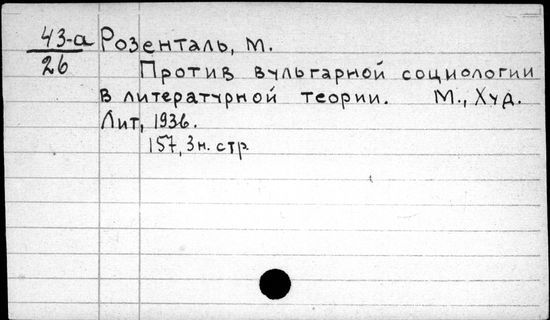 43-а Розенталь, М.
26
Против вульгарной социологии
в литературной теории. М., Худ.
Лит, 1936.
157, 3 н. стр